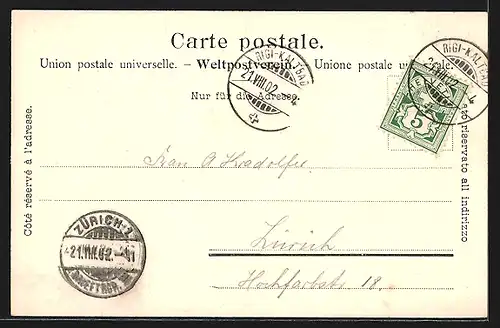 Carte postale.
Union postale universelle. – Weltpostverein. – Unione postale universale.
Nur für die Adresse.
RIGI-KALTBAD
21.VIII.02
RIGI-KALTBAD
21.VIII.02
5
Côté réservé à l'adresse.
Lato riservato all indirizzo
Frau A
Zürich
18.
ZÜRICH
21.VIII.02.